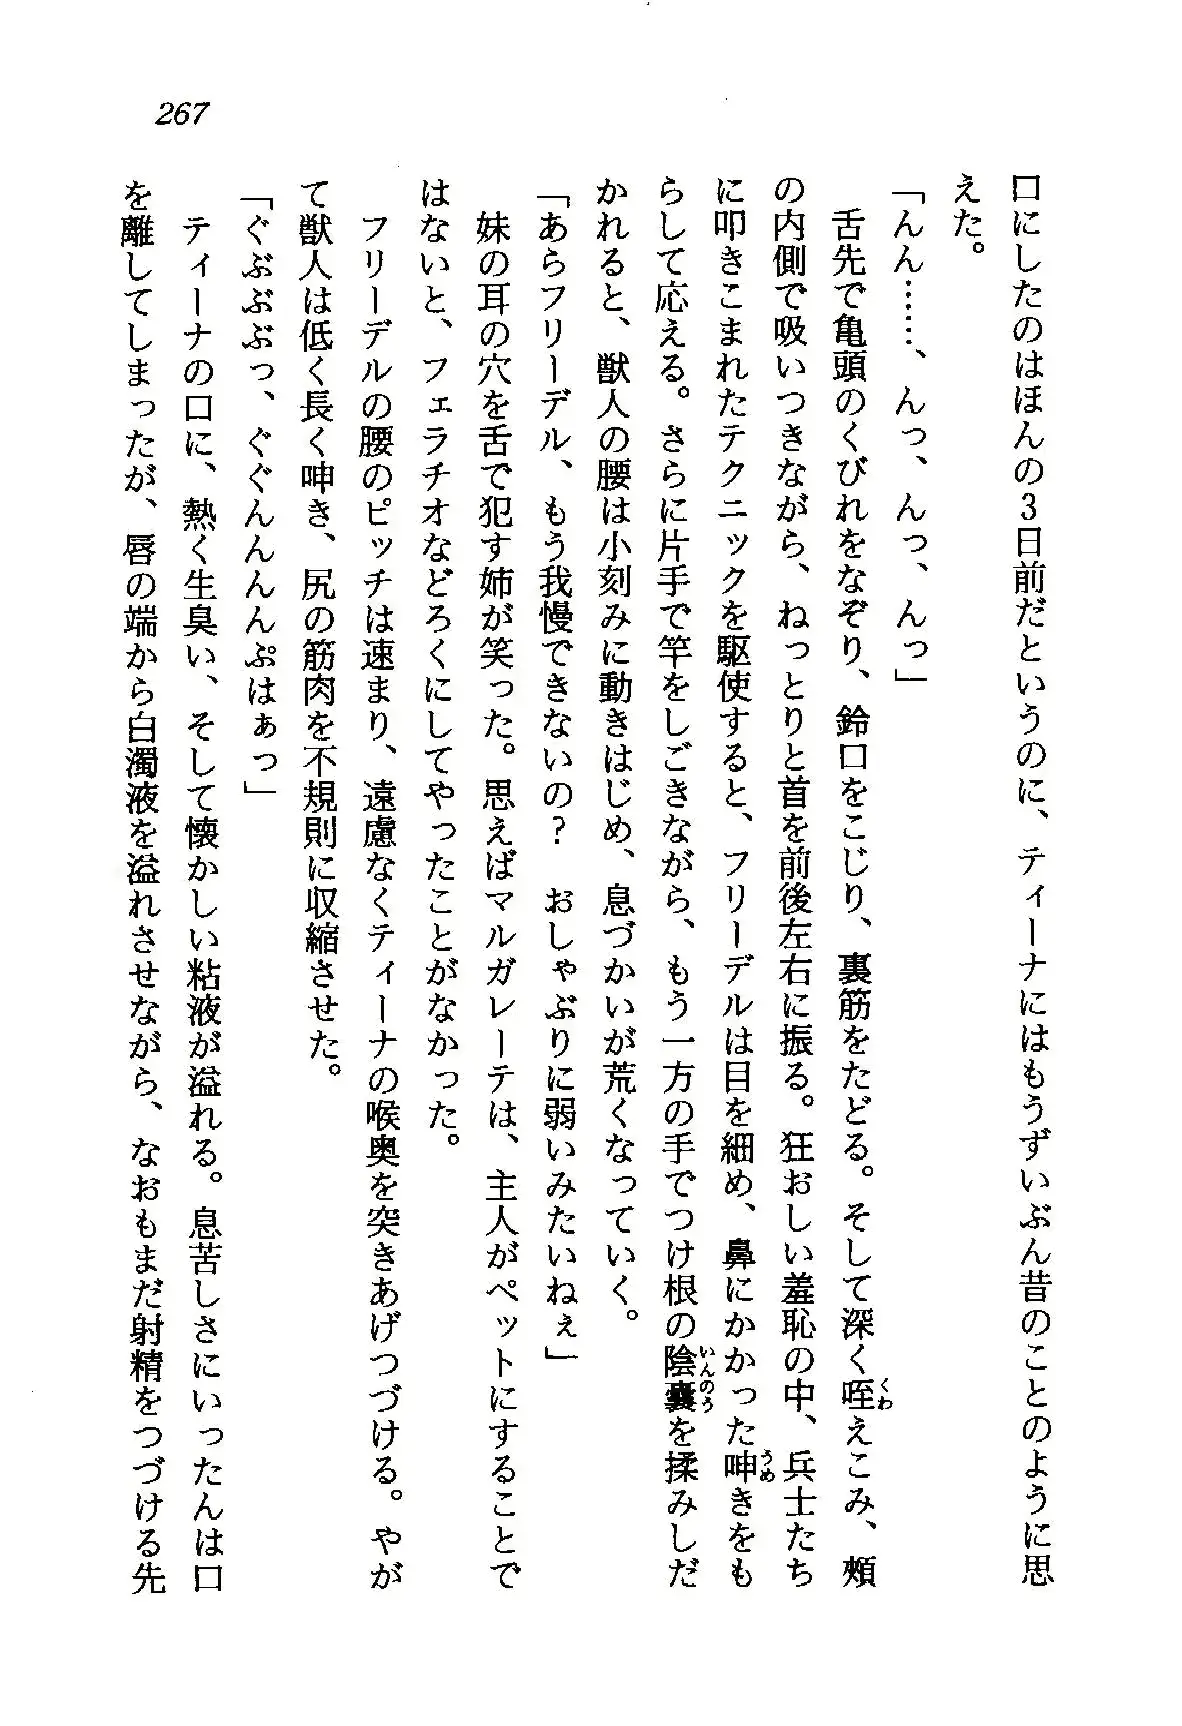 267
口にしたのはほんの3日前だというのに、ティーナにはもうずいぶん昔のことのように思
えた。
「んん……、んっ、んっ、んっ」
舌先で亀頭のくびれをなぞり、鈴口をこじり、裏筋をたどる。そして深く咥えこみ、頬
の内側で吸いつきながら、ねっとりと首を前後左右に振る。狂おしい羞恥の中、兵士たち
に叩きこまれたテクニックを駆使すると、フリーデルは目を細め、鼻にかかった呻きをも
らして応える。さらに片手で竿をしごきながら、もう一方の手でつけ根の陰嚢を揉みしだ
かれると、獣人の腰は小刻みに動きはじめ、息づかいが荒くなっていく。
「あらフリーデル、もう我慢できないの？　おしゃぶりに弱いみたいねぇ」
妹の耳の穴を舌で犯す姉が笑った。思えばマルガレーテは、主人がペットにすることで
はないと、フェラチオなどろくにしてやったことがなかった。
フリーデルの腰のピッチは速まり、遠慮なくティーナの喉奥を突きあげつづける。やが
て獣人は低く長く呻き、尻の筋肉を不規則に収縮させた。
「ぐぶぶぶっ、ぐぐんんんんぷはぁっ」
ティーナの口に、熱く生臭い、そして懐かしい粘液が溢れる。息苦しさにいったんは口
を離してしまったが、唇の端から白濁液を溢れさせながら、なおもまだ射精をつづける先